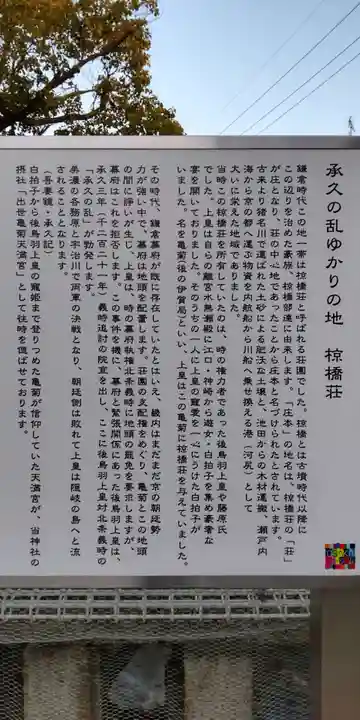 承久の乱ゆかりの地　椋橋荘
鎌倉時代この地一帯は椋橋荘と呼ばれる荘園でした。椋橋とは古墳時代以降に
この辺りを治めた豪族、椋橋部連に由来します。「庄本」の地名は、椋橋荘の「荘」
が庄となり、荘の中心地であったことから庄本と名づけられたとされています。
古来より猪名川で運ばれた土砂による肥沃な土壌と、池田からの木材運搬、瀬戸内
海から京の都へ運ぶ物資を内航船から川船へ乗せ換える港（河尻）として
大いに栄えた地域でありました。
当時この椋橋荘を所有していたのは、時の権力者であった後鳥羽上皇や藤原氏
でした。上皇は自らの離宮水無瀬殿に江口・神崎から遊女・白拍子を集め豪奢な
宴を開いておりました。そのうちの一人に上皇の寵愛を一心にうけた白拍子が
いました。名を亀菊（後の伊賀局）といい、上皇はこの亀菊に椋橋荘を与えていました。
その時代、鎌倉幕府が既に存在していたとはいえ、畿内はまだまだ京の朝廷勢
力が強い中で、幕府は地頭を配置します。荘園の支配権をめぐり、亀菊とこの地頭
の間に諍いが生じ、上皇は、時の幕府執権北条義時に地頭の罷免を要求しますが、
幕府はこれを拒否します。この事件を機に、幕府と緊張関係にあった後鳥羽上皇は、
承久三年（千二百二十一年）義時追討の院宣を出し、ここに後鳥羽上皇対北条義時の
「承久の乱」が勃発します。
美濃の各務原と宇治川で両軍の決戦となり、朝廷側は敗れて上皇は隠岐の島へと流
されることとなります。
（吾妻鏡・承久記）
白拍子から後鳥羽上皇の寵姫まで登りつめた亀菊が信仰していた天満宮が、当神社の
摂社「出世亀菊天満宮」として往時を偲ばせております。